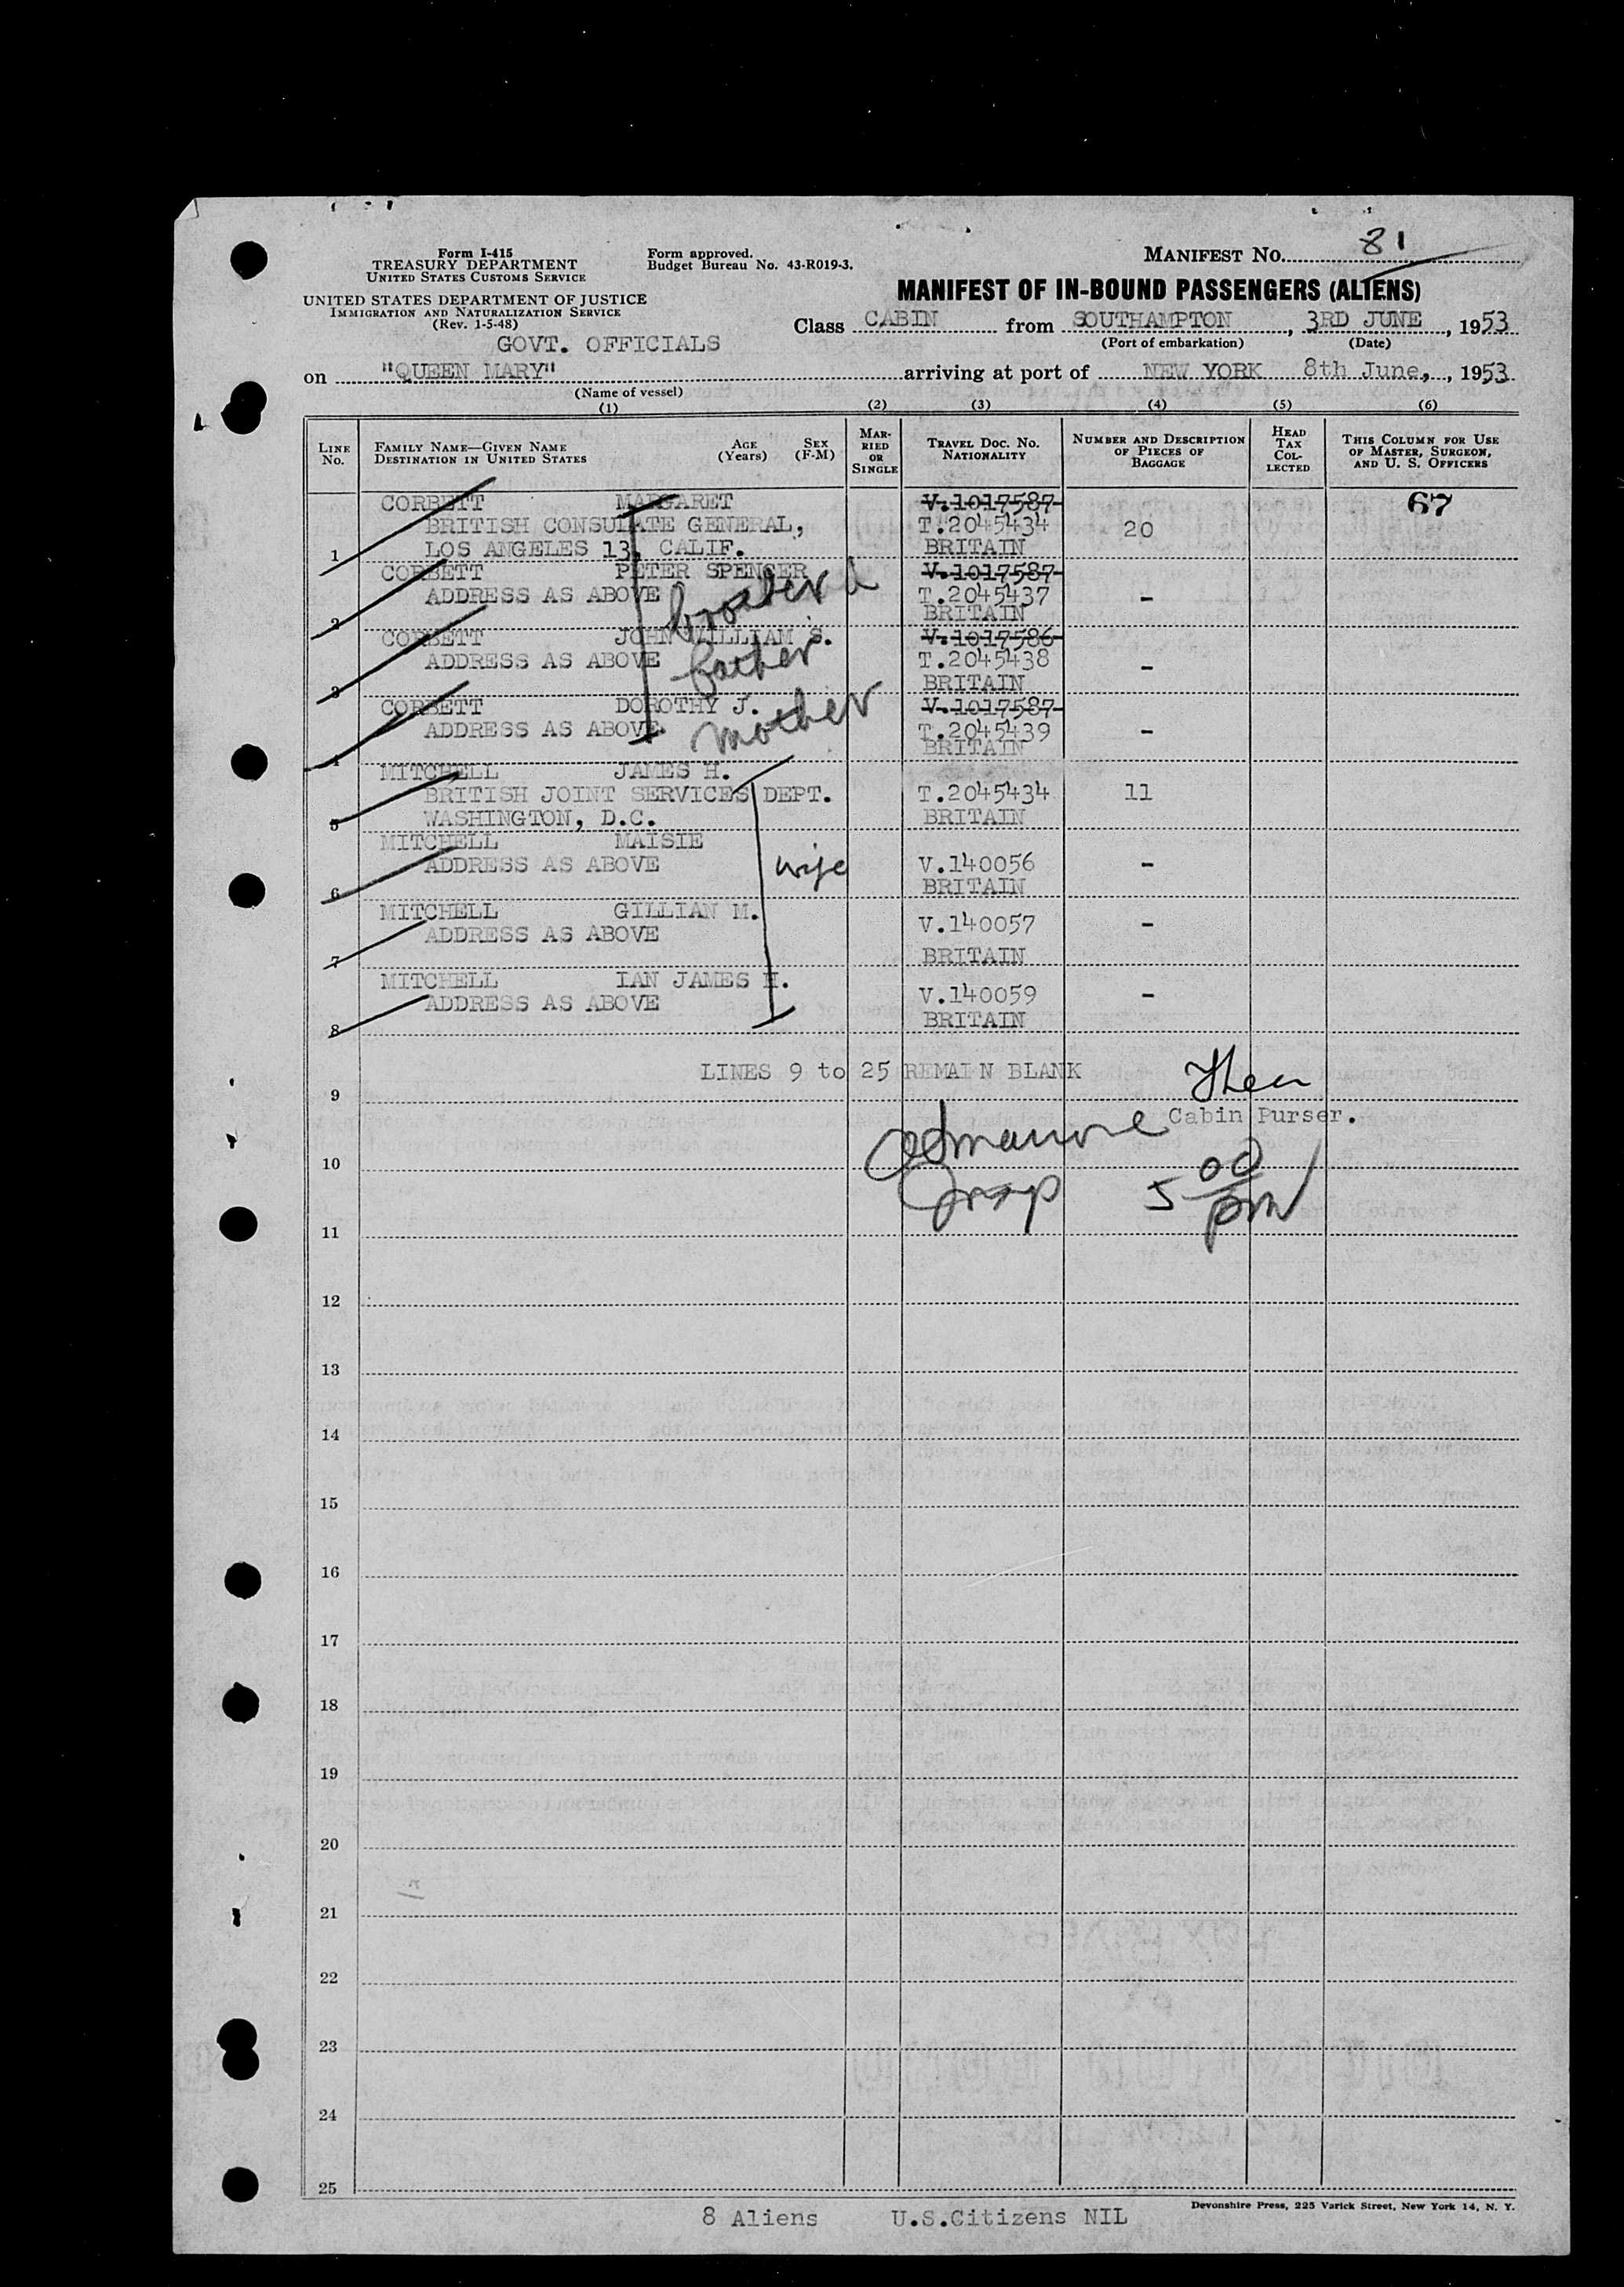 Form I-415
TREASURY DEPARTMENT
UNITED STATES CUSTOMS SERVICE
UNITED STATES DEPARTMENT OF JUSTICE
IMMIGRATION AND NATURALIZATION SERVICE
(Rev. 1-5-48)
Form approved.
Budget Bureau No. 43-R019-3.
MANIFEST NO. 81
MANIFEST OF IN-BOUND PASSENGERS (ALIENS)
Class CABIN from SOUTHAMPTON, 3RD JUNE, 1953
(Port of embarkation) (Date)
GOVT. OFFICIALS
on "QUEEN MARY" arriving at port of NEW YORK 8th June,, 1953
(Name of vessel)
(1) (2) (3) (4) (5) (6)
LINE No. FAMILY NAME—GIVEN NAME DESTINATION IN UNITED STATES AGE (Years) SEX (F-M) MARRIED OR SINGLE TRAVEL DOC. NO. NATIONALITY NUMBER AND DESCRIPTION OF PIECES OF BAGGAGE HEAD TAX COLLECTED THIS COLUMN FOR USE OF MASTER, SURGEON, AND U. S. OFFICERS
CORBETT MARGARET V.1017587 67
BRITISH CONSULATE GENERAL, T.2045434 20
1 LOS ANGELES 13, CALIF. BRITAIN
CORBETT PETER SPENCER V.1017587
ADDRESS AS ABOVE brother T.2045437 -
2 BRITAIN
CORBETT JOHN WILLIAM S. V.1017586
ADDRESS AS ABOVE father T.2045438 -
3 BRITAIN
CORBETT DOROTHY J. V.1017587
ADDRESS AS ABOVE. mother T.2045439 -
4 BRITAIN
MITCHELL JAMES H.
BRITISH JOINT SERVICES DEPT. T.2045434 11
5 WASHINGTON, D.C. BRITAIN
MITCHELL MAISIE
ADDRESS AS ABOVE wife V.140056 -
6 BRITAIN
MITCHELL GILLIAN M. V.140057 -
ADDRESS AS ABOVE
7 BRITAIN
MITCHELL IAN JAMES H.
ADDRESS AS ABOVE V.140059 -
8 BRITAIN
LINES 9 to 25 REMAIN BLANK
9
Cabin Purser.
10
5 00 pm
11
12
13
14
15
16
17
18
19
20
21
22
23
24
25
8 Aliens U.S.Citizens NIL
Devonshire Press, 225 Varick Street, New York 14, N. Y.